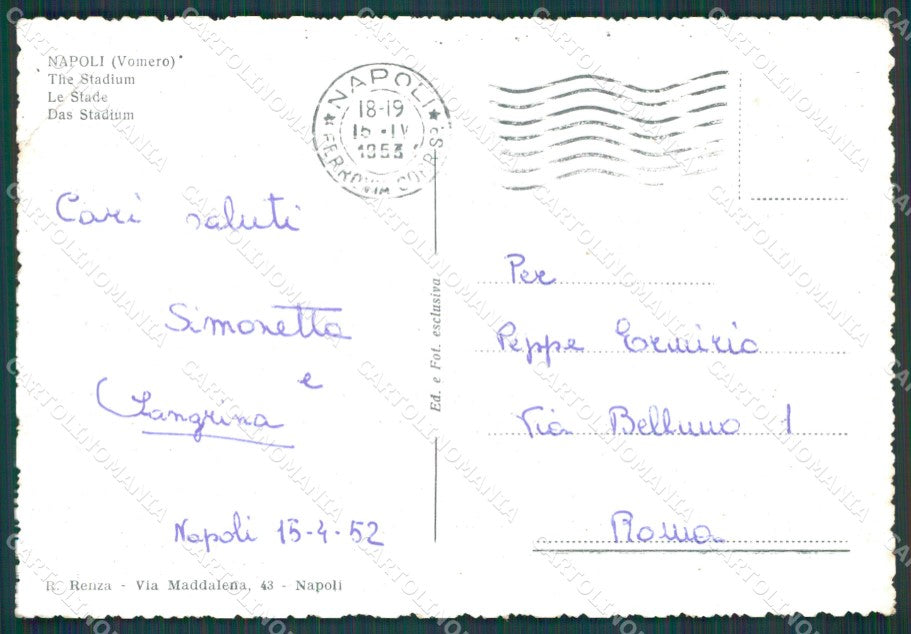 NAPOLI (Vomero)
The Stadium
Le Stade
Das Stadium
NAPOLI
18-19
15 ·IV
1953
FERROVIA CORRSP
Cari saluti
Simonetta
e
Napoli 15-4-52
R. Renza - Via Maddalena, 43 - Napoli
Ed. e Fot. esclusiva
Per
Peppe Ermirio
Via Belluno 1
Roma
CARTOLINOMANIA